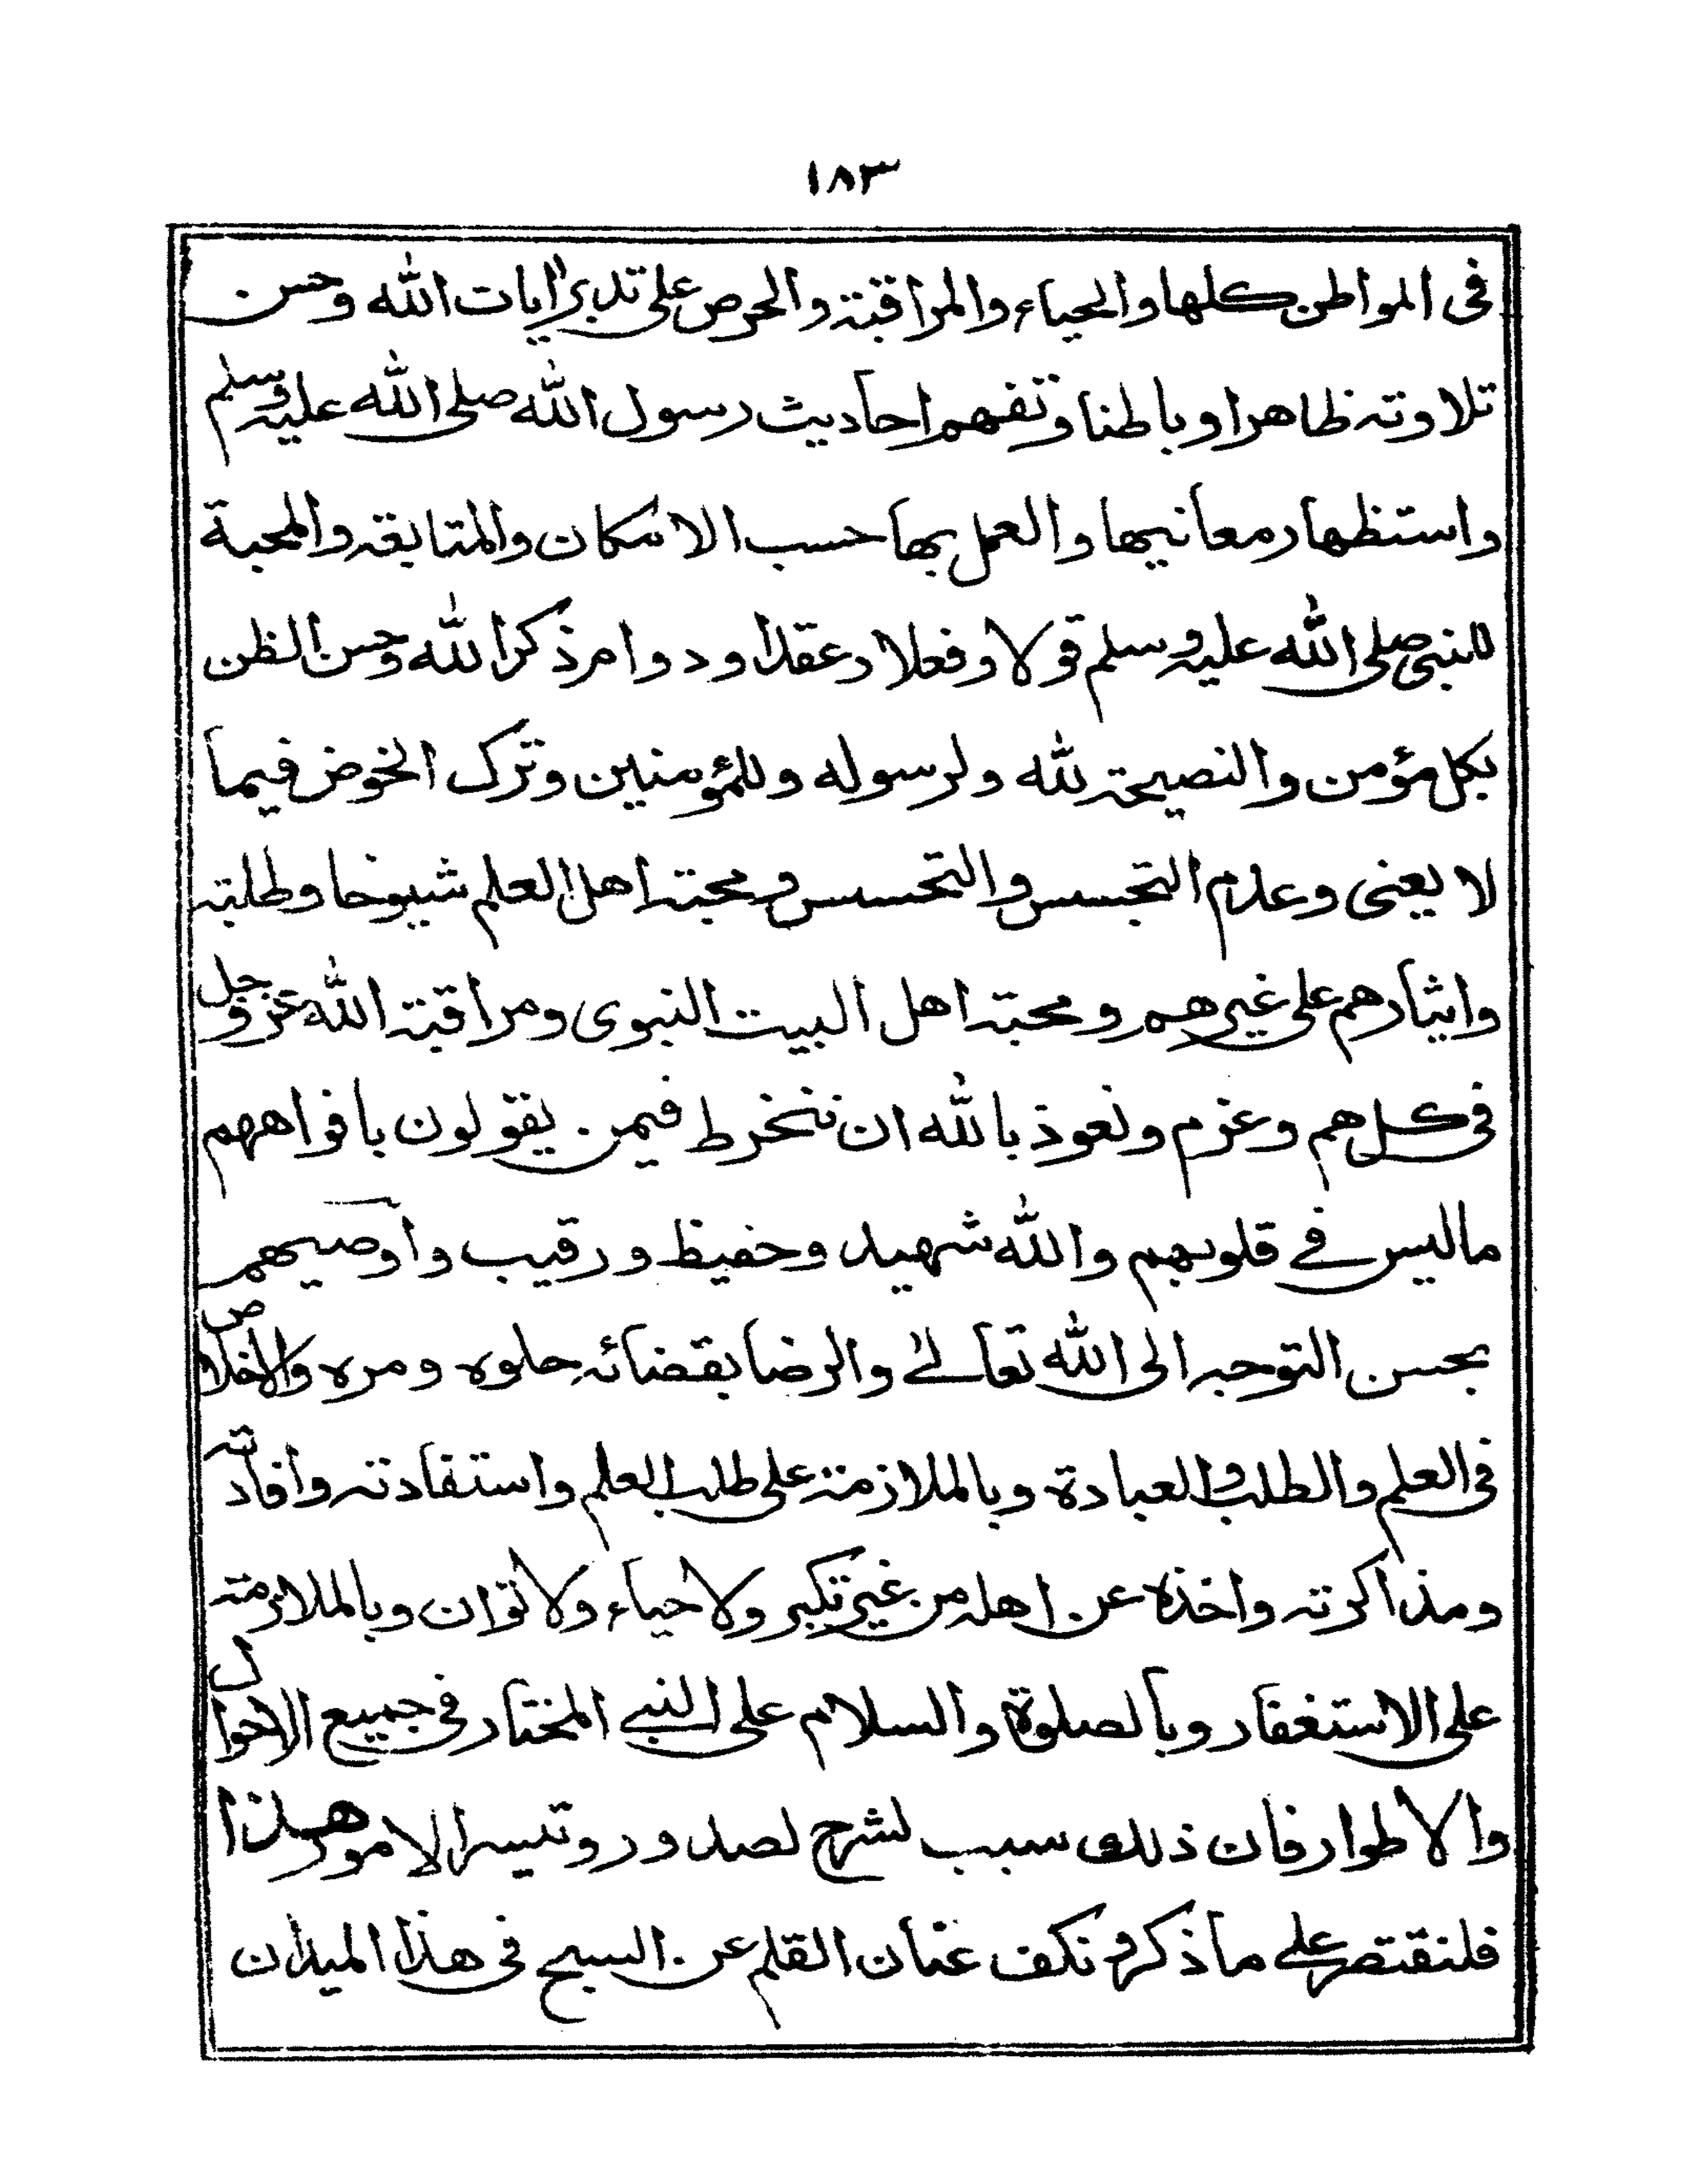 ١٨٣
فى المواطن كلها والحياء والمراقبة والحرص على تدبر آيات الله وحسن
تلاوته ظاهرا وباطنا وتفهم احاديث رسول الله صلى الله عليه وسلم
واستظهار معانيها والعمل بها حسب الامكان والمتابعة والمحبة
للنبى صلى الله عليه وسلم قولا وفعلا وعقدا ودوام ذكر الله وحسن الظن
بكل مؤمن والنصيحة لله ولرسوله وللمؤمنين وترك الخوض فيما
لا يعنى وعدم التجسس والتحسس ومحبة اهل العلم شيوخا وطلبة
وايثارهم على غيرهم ومحبة اهل البيت النبوى ومراقبة الله عز وجل
فى كل هم وعزم ونعوذ بالله ان ننخرط فيمن يقولون بافواههم
ماليس فے قلوبهم والله شهيد وحفيظ ورقيب وأوصيهم
بحسن التوجه الى الله تعالےٰ والرضا بقضائه حلوه ومره والاخلاص
فى العلم والطلب والعبادة وبالملازمة على طلب العلم واستفادته وافادته
ومذاكرته واخذه عن اهله من غير تكبر ولا حياء ولا توان وبالملازمة
على الاستغفار وبالصلوة والسلام على النبے المختار فى جميع الاحوال
والاطوار فان ذلك سبب لشرح لصدور وتيسر الامور هذا
فلنقتصر على ما ذكر ونكف عنان القلم عن السبح فى هذا الميدان